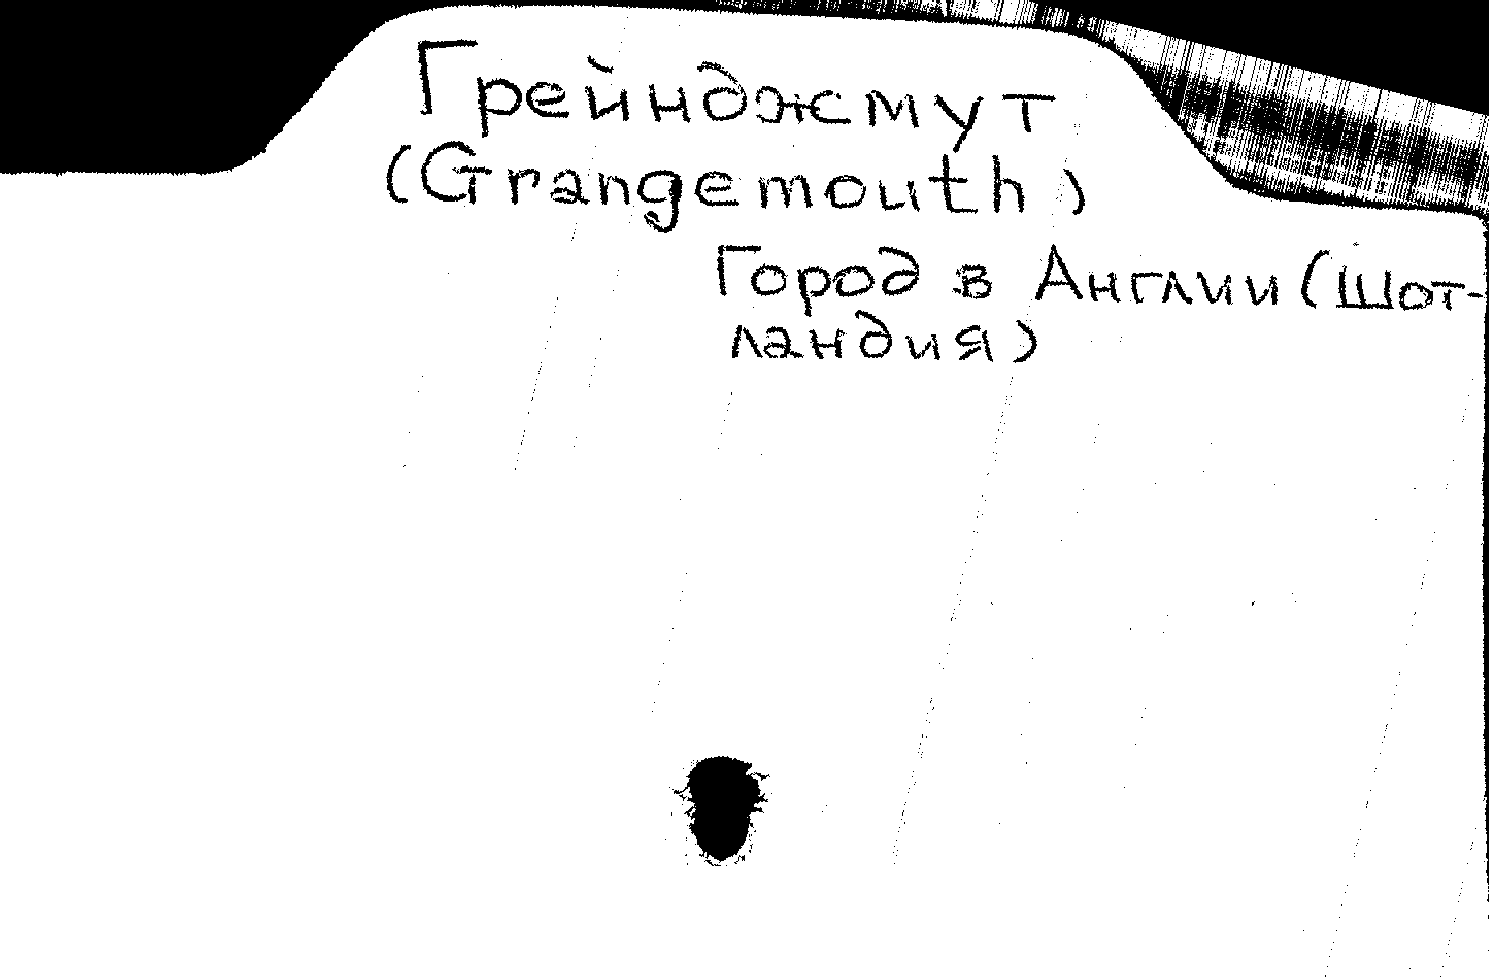 Грейнджмут
(Grangemouth)
Город в Англии (Шот-
ландия)